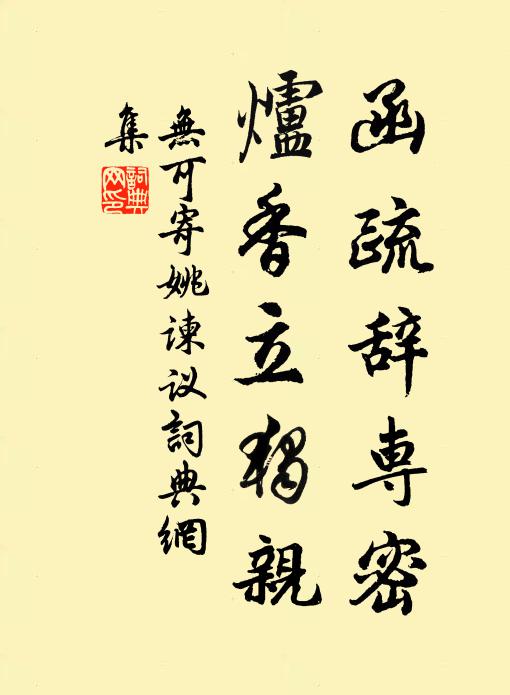 函疏辞専密
爐香立獨親
無可寄姚諫议詞典網
集
詞典网印